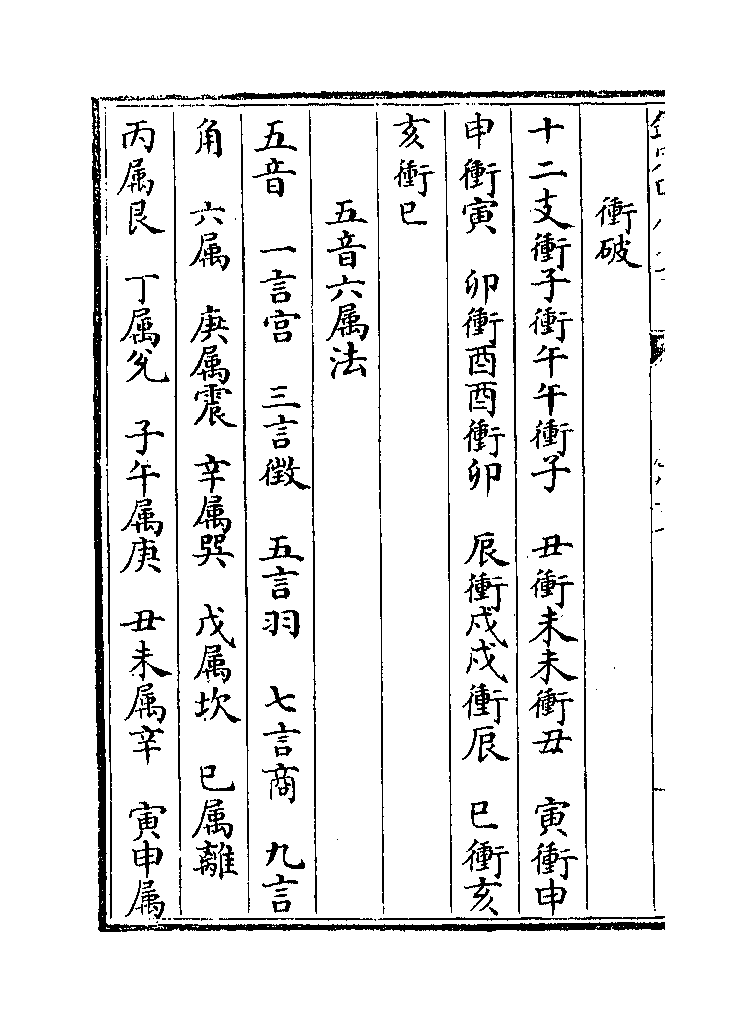 衝破
十二支衝子衝午午衝子　丑衝未未衝丑　寅衝申
申衝寅　卯衝酉酉衝卯　辰衝戍戍衝辰　巳衝亥
亥衝巳
五音六属法
五音　一言宫　三言徴　五言羽　七言商　九言
角　六属　庚属震　辛属巽　戊属坎　巳属離
丙属艮　丁属兊　子午属庚　丑未属辛　寅申属